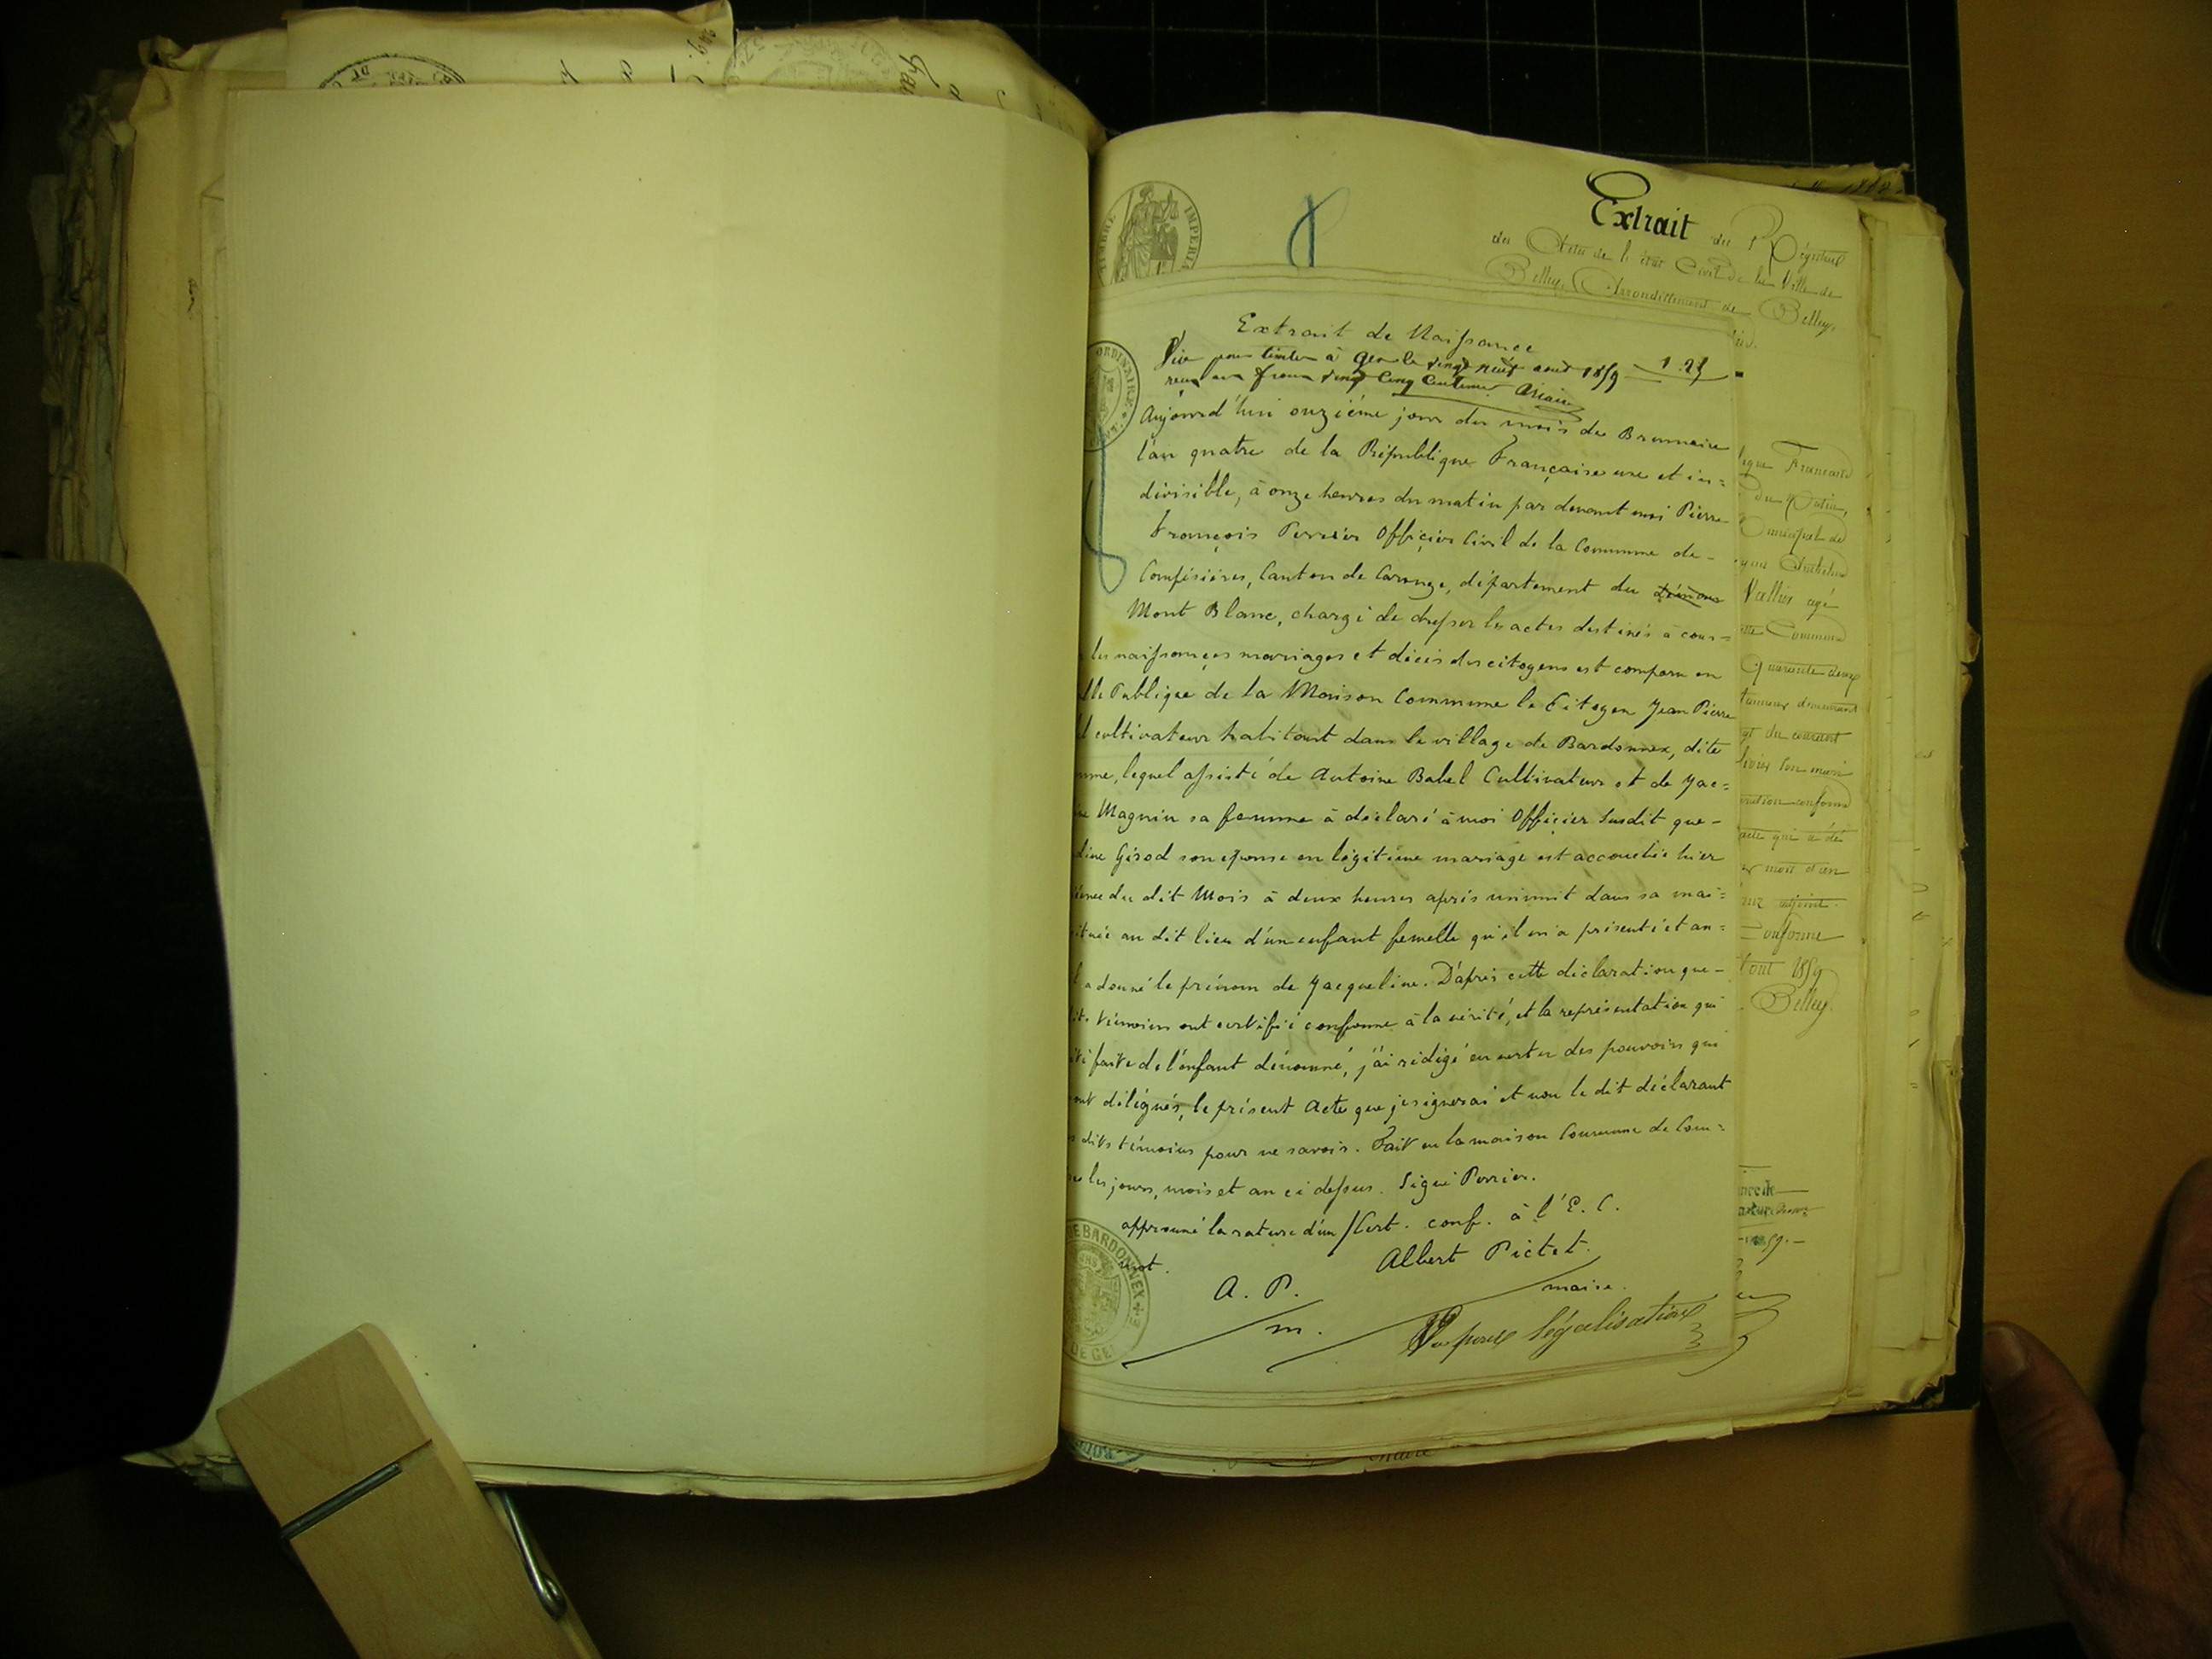 Extrait du Régistre
des Actes de l'état Civil de la Ville de
Belley, Arrondissement de Belley,
TIMBRE IMPERIAL
ORDINAIRE
Extrait de Naissance
Visé pour timbre à Gex le vingt neuf aout 1859 1.25
reçu un franc vingt cinq centimes
Aujourd'hui onzième jour du mois de Brumaire
l'an quatre de la République Française une et in=
divisible, à onze heures du matin par devant moi Pierre
François Perrier Officier Civil de la Commune de-
Compésières, Canton de Carouge, département du
Mont Blanc, chargé de dresser les actes destinés à cons=
les naissances mariages et décès des citoyens est comparu en
lle Publique de la Maison Commune le Citoyen Jean Pierre
l cultivateur habitant dans le village de Bardonnex, dite
mune, lequel assisté de Antoine Babel Cultivateur et de Jac=
ne Magnin sa femme à déclaré à moi Officier Susdit que-
line Girod son épouse en légitime mariage est accouchée hier
ième du dit Mois à deux heures après minuit dans sa mai=
ituée au dit lieu d'un enfant femelle qu'il m'a présenté et au=
l a donné le prénom de Jacqueline. D'après cette déclaration que-
its témoins ont certifié conforme à la vérité, et la représentation qui
été faite de l'enfant dénommé, j'ai rédigé en vertu des pouvoirs qui
ont délégués, le présent Acte que je signerai et non le dit déclarant
s dits témoins pour ne savoir. Fait en la maison Commune de Com=
les jours, mois et an ci dessus. Signé Perrier.
approuvé la rature d'un / Cert. conf. à l'E. C.
mot. Albert Pictet.
A. P. maire.
m. Vu pour légalisation
E BARDONNEX
DE GE
du Matin,
Municipal de
Vallier agé
ette Commune
Quarante deux
gt du courant
son mari
ration conforme
acte qui a été
mois d'un
adjoint.
Conforme
Août 1859
Belley.